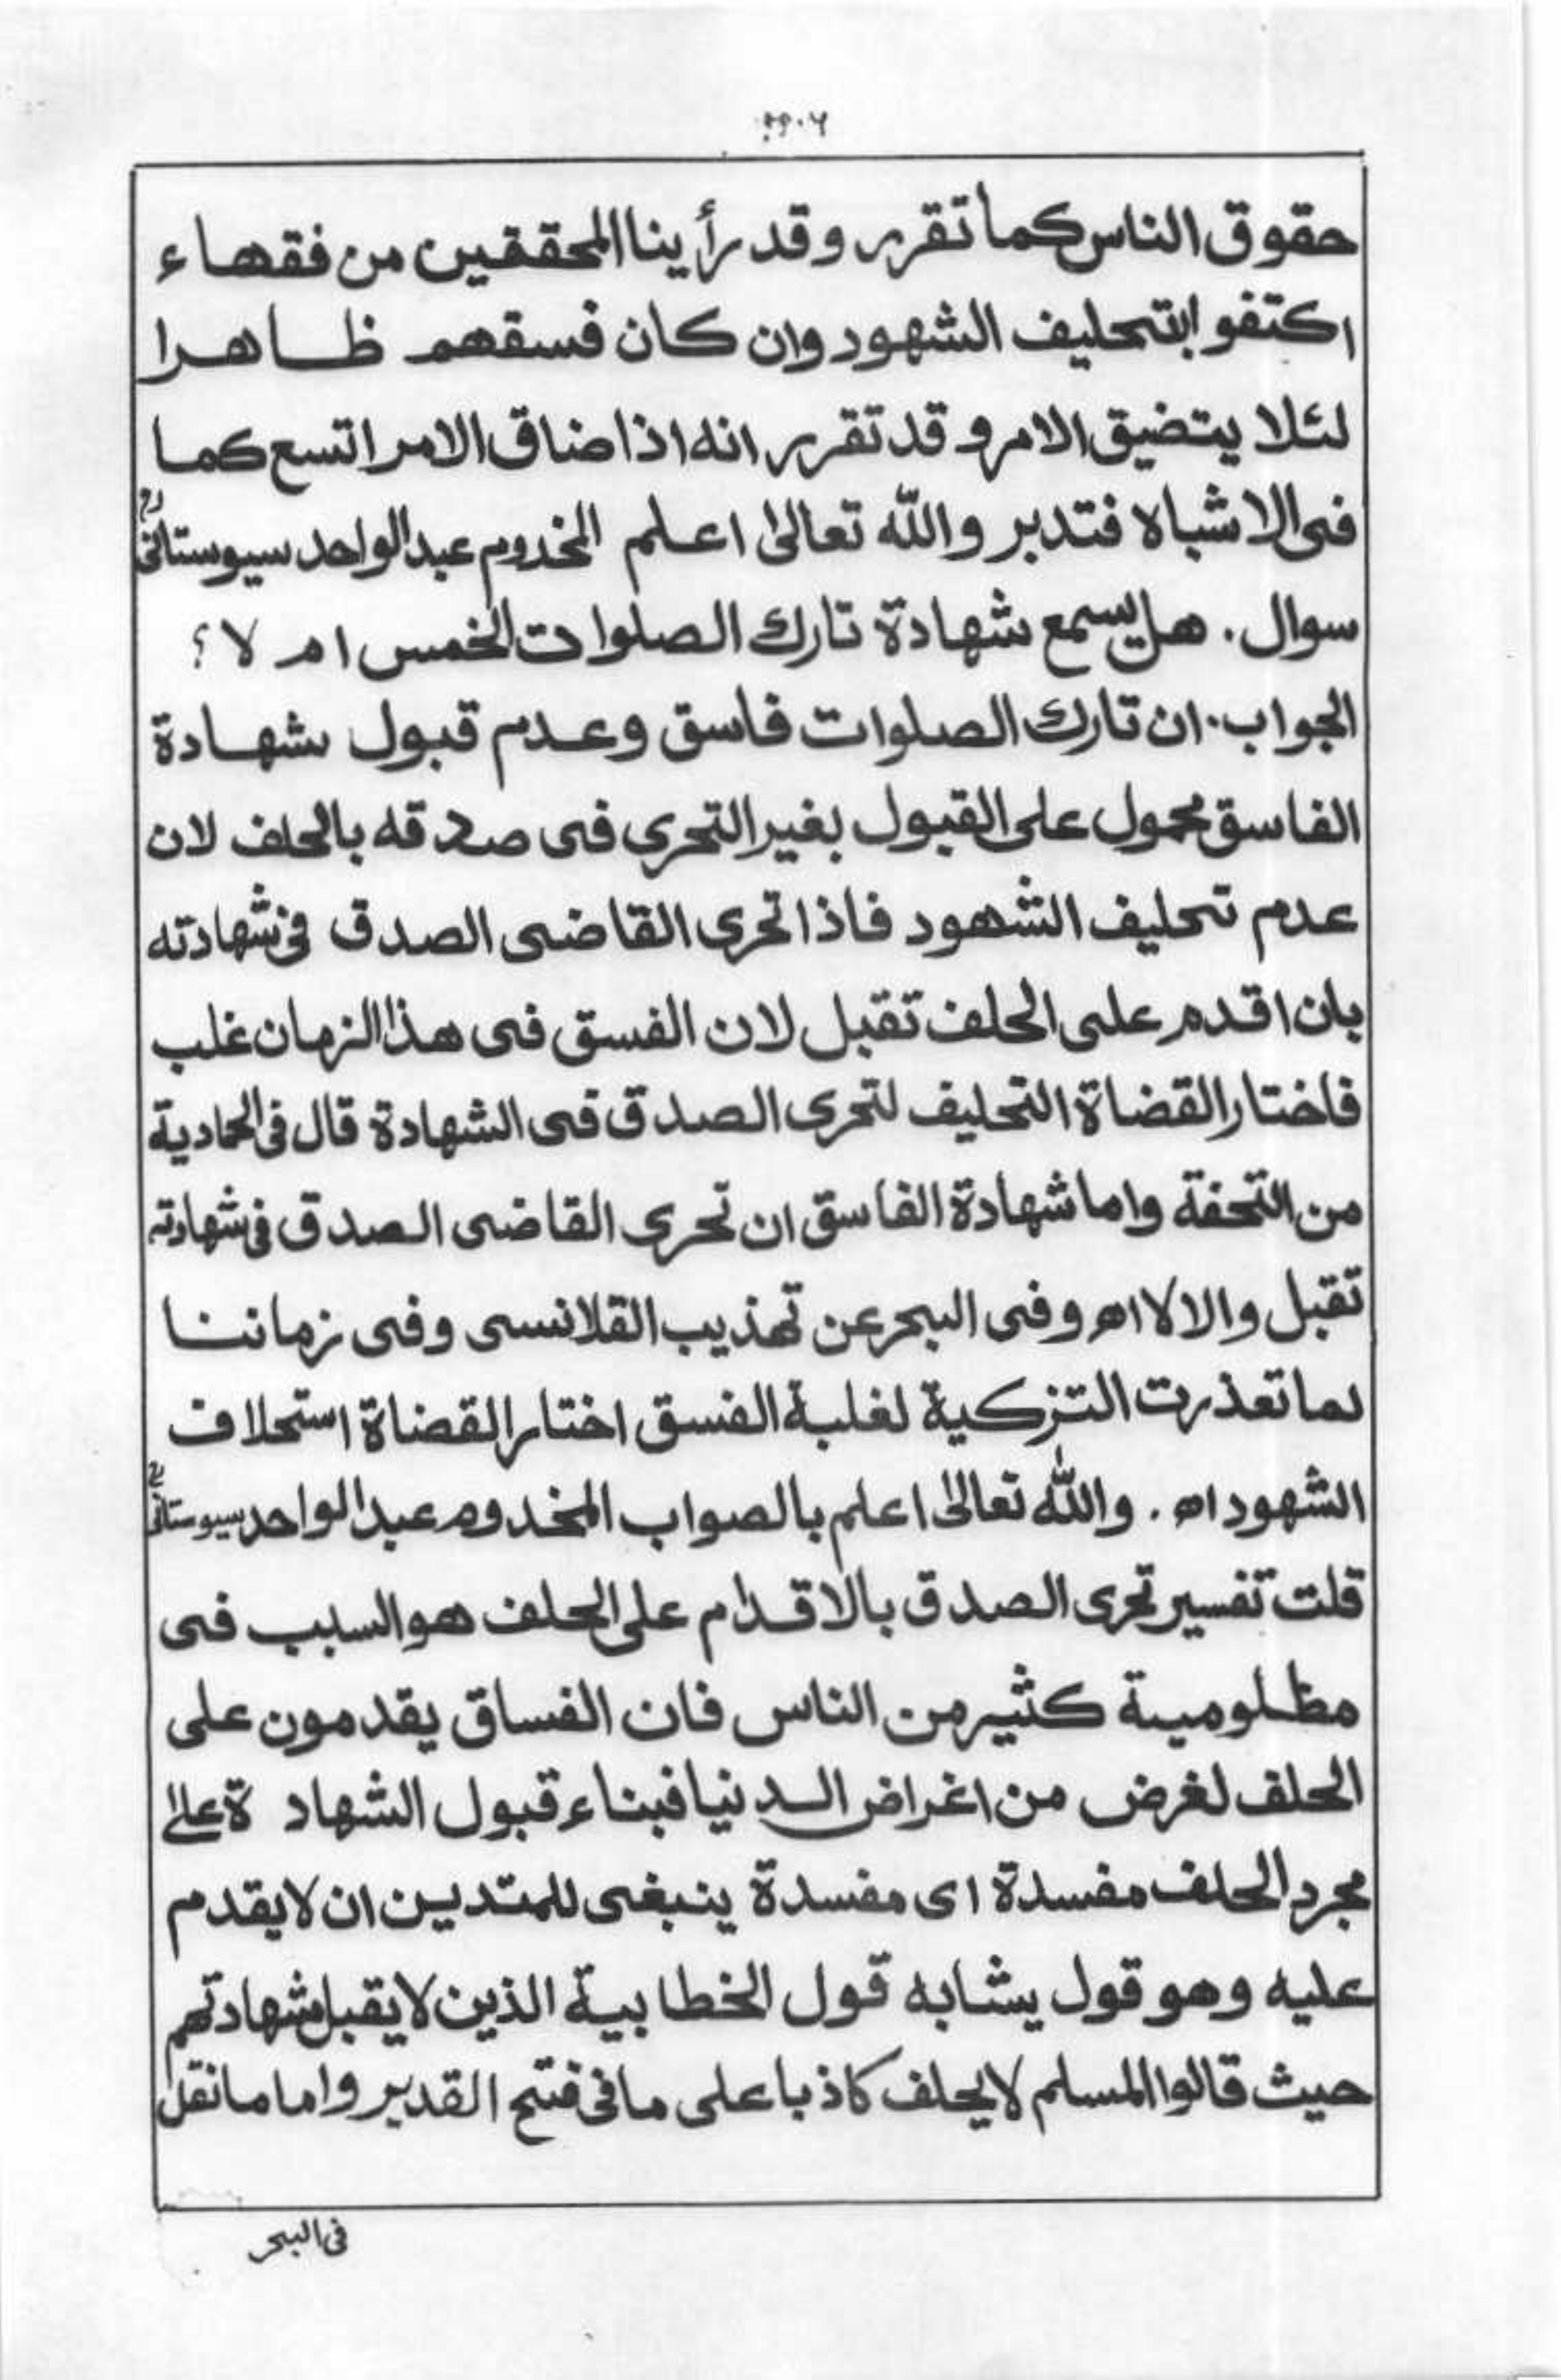 حقوق الناس كما تقرر وقد رأينا المحققين من فقهاء
اكتفوا بتحليف الشهود وان كان فسقهم ظاهرا
لئلا يتضيق الامر و قد تقرر انه اذا ضاق الامر اتسع كما
فى الاشباه فتدبر والله تعالىٰ اعلم المخدوم عبد الواحد سيوستانیؒ
سوال . هل يسمع شهادة تارك الصلوات الخمس ام لا ؟
الجواب . ان تارك الصلوات فاسق وعدم قبول شهادة
الفاسق محمول على القبول بغير التحرى فى صدقه بالحلف لان
عدم تحليف الشهود فاذا تحرى القاضى الصدق فى شهادته
بان اقدم على الحلف تقبل لان الفسق فى هذا الزمان غلب
فاختار القضاة التحليف لتحرى الصدق فى الشهادة قال فى الحمادية
من التحفة واما شهادة الفاسق ان تحرى القاضى الصدق فى شهادته
تقبل والا لا اه وفى البحر عن تهذيب القلانسى وفى زماننا
لما تعذرت التزكية لغلبة الفسق اختار القضاة استحلاف
الشهود اه . والله تعالىٰ اعلم بالصواب المخدوم عبد الواحد سيوستانیؒ
قلت تفسير تحرى الصدق بالاقدام على الحلف هو السبب فى
مظلومية كثير من الناس فان الفساق يقدمون على
الحلف لغرض من اغراض الدنيا فبناء قبول الشهادة علىٰ
مجرد الحلف مفسدة اى مفسدة ينبغى للمتدين ان لا يقدم
عليه وهو قول يشابه قول الخطابية الذين لا يقبل شهادتهم
حيث قالوا المسلم لا يحلف كاذبا على ما فى فتح القدير واما ما نقل
فى البحر